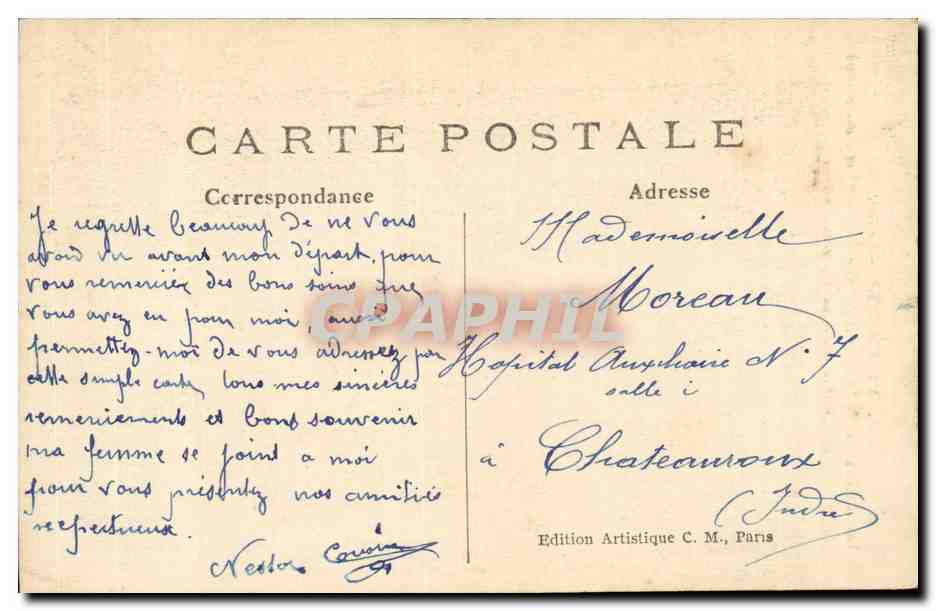 CARTE POSTALE
Correspondance
Je regrette beaucoup de ne vous
avoid vu avant mon départ, pour
vous remerciez des bons soins que
vous avez eu pour moi, aussi
permettez-moi de vous adressez par
cette simple carte tous mes sincères
remerciements et bons souvenir
ma femme se joint a moi
pour vous présentez nos amitiés
respectueux.
Nestor
Adresse
Mademoiselle
Moreau
Hopital Auxiliaire N° 7
salle i
à Chateauroux
(Indre)
Edition Artistique C. M., Paris
CPAPHIL